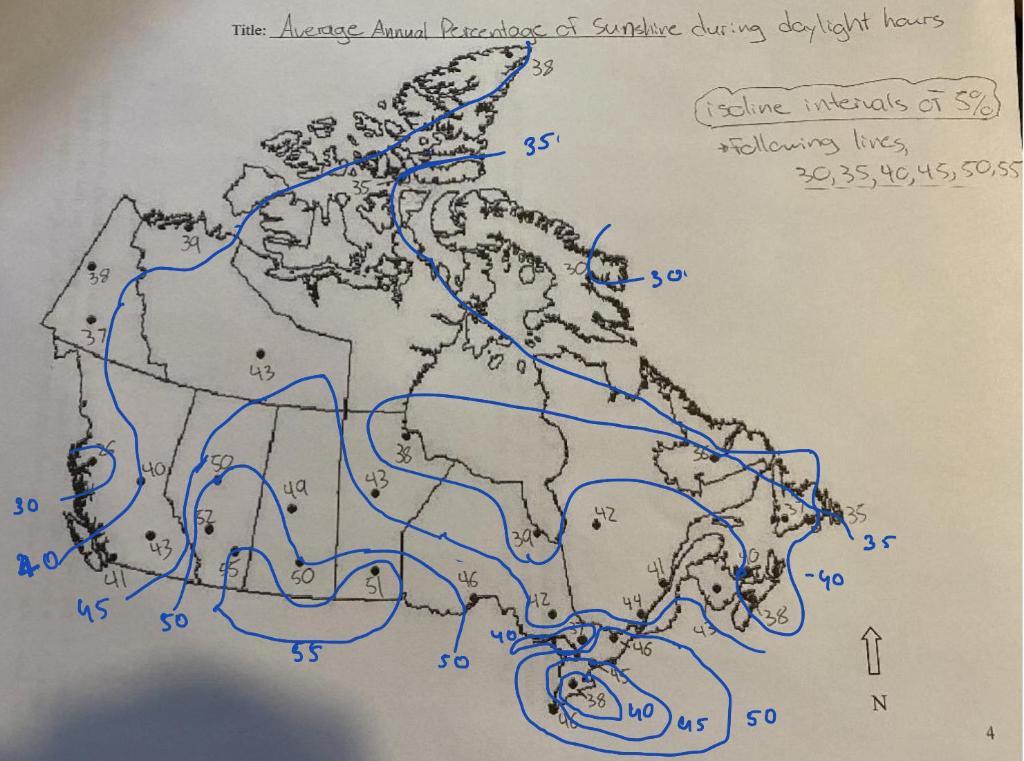 Title: Average Annual Percentage of sunshine during daylight hours
38
isoline intervals of 5%
35
*Following lines,
30, 35, 40, 45, 50, 55
35
39
38
30
30
37
43
36
38
50
40
49
43
30
42
37
35
52
39
35
43
40
41
55
50
51
41
40
-40
45
46
42
44
38
50
43
40
46
55
50
45
N
38
40
45
50
46
4